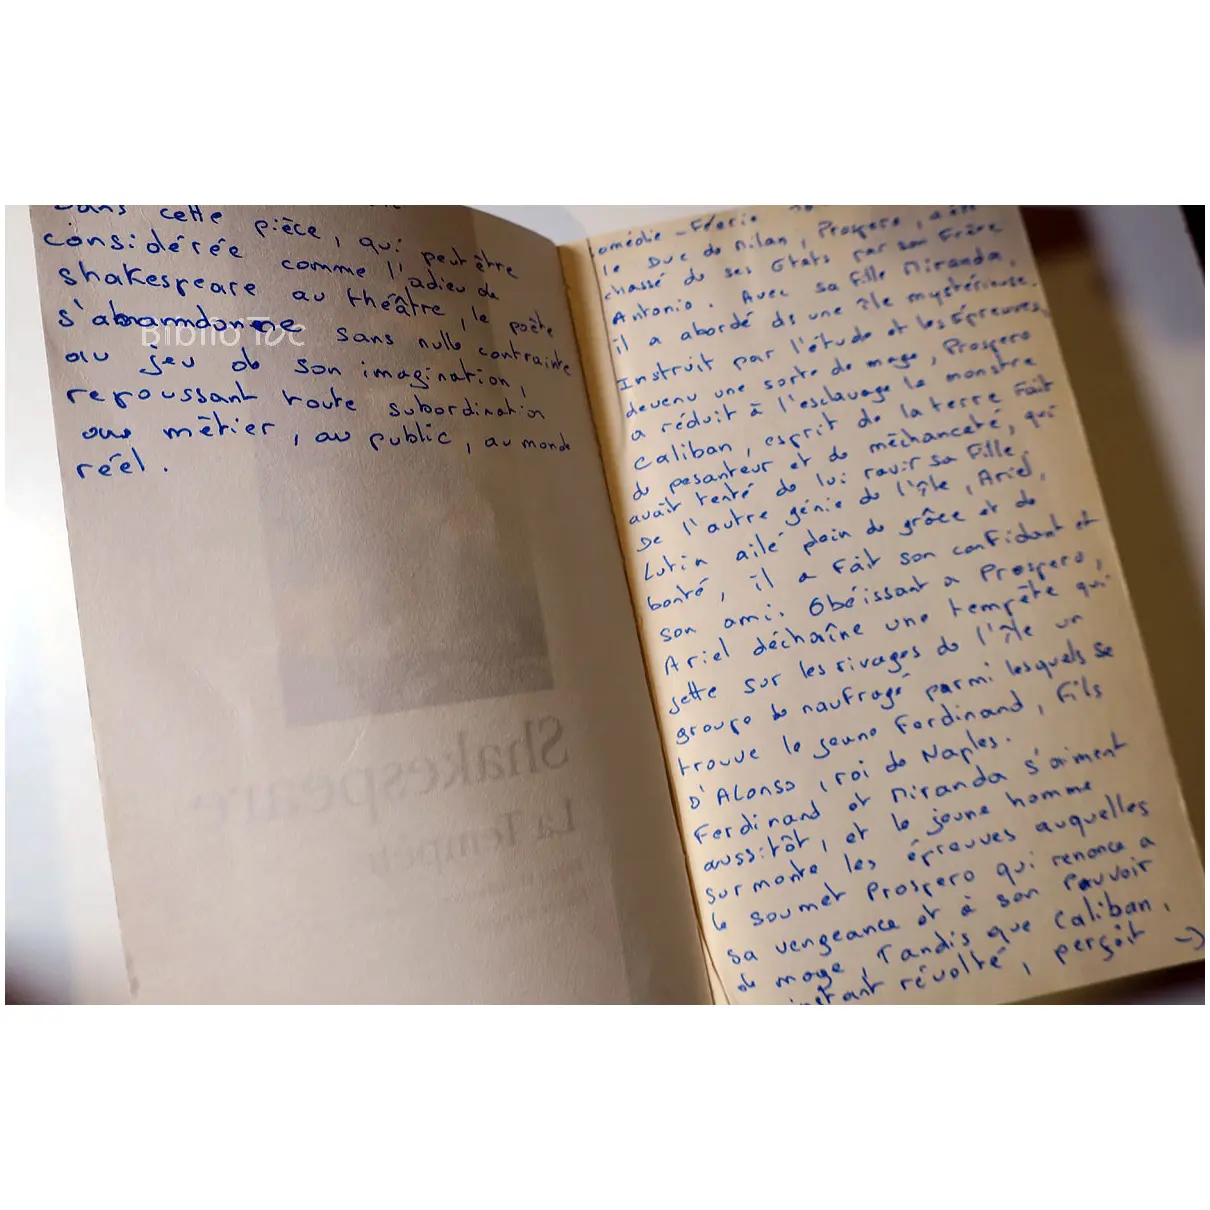 Dans cette pièce, qui peut être
considérée comme l'adieu de
Shakespeare au théâtre, le poète
s'abandonne sans nulle contrainte
au jeu de son imagination,
repoussant toute subordination
au métier, au public, au monde
réel.
Biblio Toc
Shakespeare
La Tempête
comédie - Féerie
le Duc de Milan, Prospero, a été
chassé de ses Etats par son Frère
Antonio. Avec sa fille Miranda,
il a abordé ds une île mystérieuse.
Instruit par l'étude et les épreuves,
devenu une sorte de mage, Prospero
a réduit à l'esclavage le monstre
Caliban, esprit de la terre fait
de pesanteur et de méchanceté, qui
avait tenté de lui ravir sa fille,
De l'autre génie de l'île, Ariel,
Lutin ailé plein de grâce et de
bonté, il a fait son confident et
son ami. Obéissant a Prospero,
Ariel déchaîne une tempête qui
jette sur les rivages de l'île un
groupe de naufragé parmi lesquels se
trouve le jeune Ferdinand, fils
D'Alonso, roi de Naples.
Ferdinand et Miranda s'aiment
aussitôt, et le jeune homme
surmonte les épreuves auquelles
le soumet Prospero qui renonce a
sa vengeance et à son Pouvoir
de mage, Tandis que Caliban,
instant révolté, perçoit →